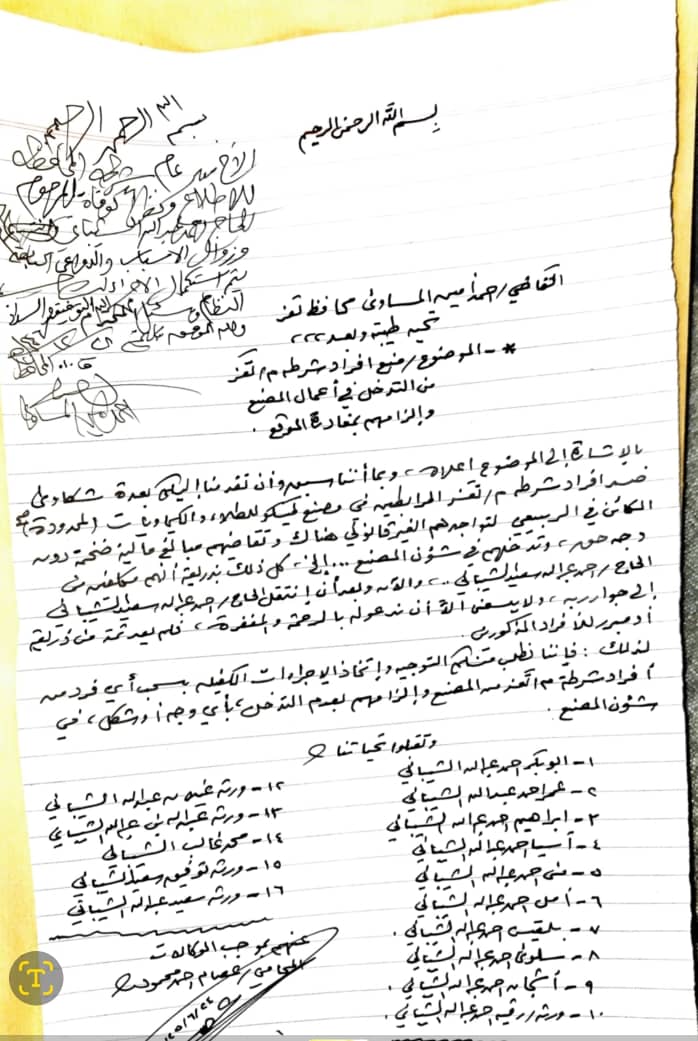 بسم الله الرحمن الرحيم
بسم الله الرحمن الرحيم
الأخ مدير عام شرطة المحافظة
للاطلاع ونظراً لوفاة المرحوم
الحاج احمد عبدالله الشيباني
وزوال الاسباب والدواعي السابقة
يتم استكمال الإجراءات
النظام
القاضي/ احمد أمين المساوى محافظ تعز
تحيه طيبة وبعد،،،
* - الموضوع/ منع افراد شرطه م/ تعز
من التدخل في أعمال المصنع
وإلزامهم بمغادرة الموقع.
بالإشارة إلى الموضوع أعلاه، وبما أننا سبق وأن تقدمنا إليكم بعدة شكاوى
ضد افراد شرطه م/ تعز المرابطين في مصنع للطلاء والكيماويات (المحدودة)
الكائن في الربيعي لتواجدهم الغير قانوني هناك وتقاضيهم مبالغ مالية ضخمة دون
وجه حق، وتدخلهم في شؤون المصنع ... إلخ، كل ذلك بذريعة أنهم مكلفين من
الحاج/ احمد عبداله سعيد الشيباني .. والآن وبعد أن إنتقل الحاج/ احمد عبداله سعيد الشيباني
إلى جوار ربه، ولا يسعنى الا أن ندعو له بالرحمة والمغفرة، فلم يعد ثمة من ذريعة
أو مبرر للأفراد المذكورين.
لذلك: فإننا نطلب منكم التوجيه وإتخاذ الإجراءات الكفيله بسحب أي فرد من
أفراد شرطة م/ تعز من المصنع وإلزامهم بعدم التدخل، بأي وجه أو شكل، في
شئون المصنع.
وتقبلوا تحياتنا
١- ابوبكر احمد عبداله الشيباني
٢- عمر احمد عبداله الشيباني
٣- ابراهيم احمد عبداله الشيباني
٤- آسيا احمد عبداله الشيباني
٥- منى احمد عبداله الشيباني
٦- أمل احمد عبداله الشيباني
٧- بلقيس احمد عبداله الشيباني.
٨- سلوى احمد عبداله الشيباني
٩- أشجان احمد عبداله الشيباني.
١٠- ورثه/ رقيه احمد عبداله الشيباني.
١٢- ورثة عبداله الشيباني
١٣- ورثه عبداله الشيباني
١٤- محمد غالب الشيباني
١٥- ورثه توفيق سعيد الشيباني
١٦- ورثه سعيد عبداله الشيباني
عنهم بموجب الوكالات
المحامي/ عصام احمد محمود